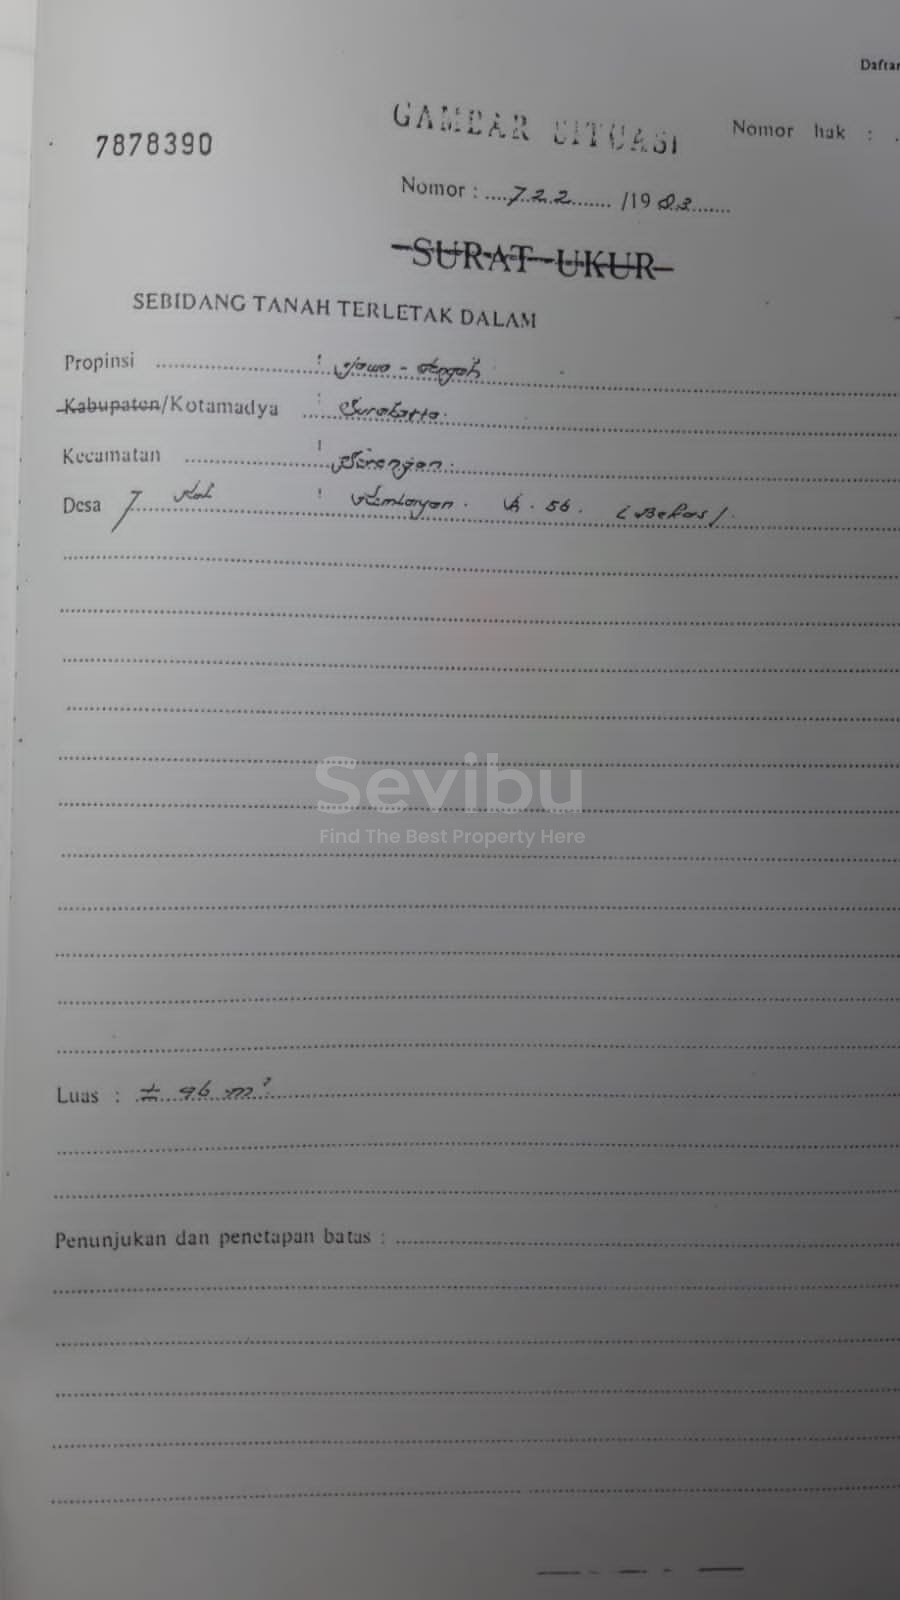 Daftar
GAMBAR SITUASI
Nomor hak :
7878390
Nomor : 722 /1983
SURAT UKUR
SEBIDANG TANAH TERLETAK DALAM
Propinsi : Jawa - Tengah
Kabupaten/Kotamadya : Surakarta.
Kecamatan : Serengan.
Desa / Kel : Kemlayan. VI. 56. (Bekas)
Sevibu
Find The Best Property Here
Luas : ± 96 m²
Penunjukan dan penetapan batas :